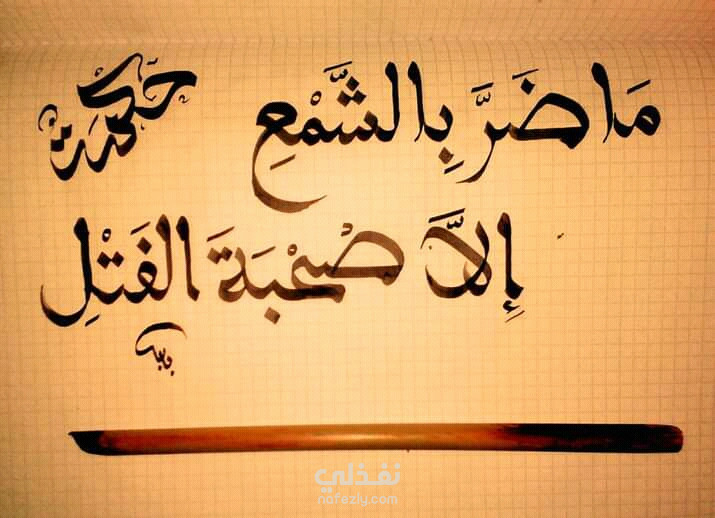 مَا ضَرَّ بِالشَّمْعِ حكمة
إِلاَّ صُحْبَةَ الفَتْلِ
نفذلي
nafezly.com